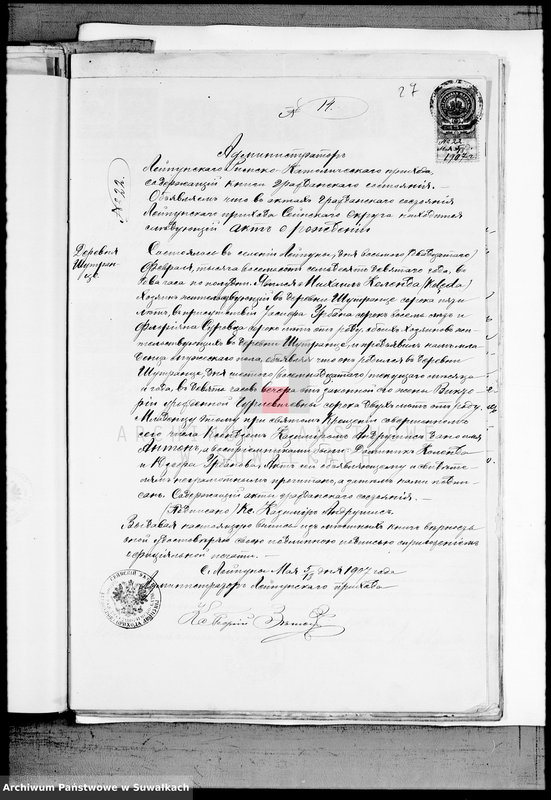 27
№ 14.
№ 22
1907 г.
№ 22.
Администраторъ
Лейпунскаго Римско-Католическаго прихода,
содержащій книги гражданскаго состоянія. —
Объявляемъ что въ актахъ гражданскаго состоянія
Лейпунскаго прихода Сейнскаго Округа находится
слѣдующій актъ о рожденіи
Деревня
Состоялось въ селеніи Лейпуны, дня восьмаго /двадцатаго/
Февраля, тысяча восемьсотъ семьдесятъ девятаго года, въ
два часа по полудни. Явился Михаилъ Коленда /Kolęda/
жительствующій въ деревнѣ
лѣтъ, въ присутствіи Іосифа Урбана сорока восьми лѣтъ и
сорока лѣтъ отъ роду, обоихъ хозяевъ жи-
тельствующихъ въ деревнѣ и предъявилъ намъ мла-
денца мужескаго пола, объявляя что онъ родился въ деревнѣ
дня шестого /восемнадцатаго/ текущаго мѣсяца
и года, въ девять часовъ вечера отъ законной его жены Викто-
ріи урожденной сорока двухъ лѣтъ отъ роду.
Младенцу этому при святомъ Крещеніи совершенномъ
сего числа Ксендзомъ Казиміромъ дано имя
Антонъ, а воспріемниками были Доминикъ Коленда
и Урбанова. Актъ сей объявляющему и свидѣте-
лямъ неграмотнымъ прочитанъ, а нами подпи-
санъ. Содержащій акты гражданскаго состоянія. —
/Подписано/ Кс. Казиміръ
настоящую выпись изъ подлинныхъ книгъ
своею подписью съ приложеніемъ
оффиціальной печати. —
С. Лейпуны Мая 5/18 дня 1907 года
Администраторъ Лейпунскаго прихода
Archiwum Państwowe w Suwałkach